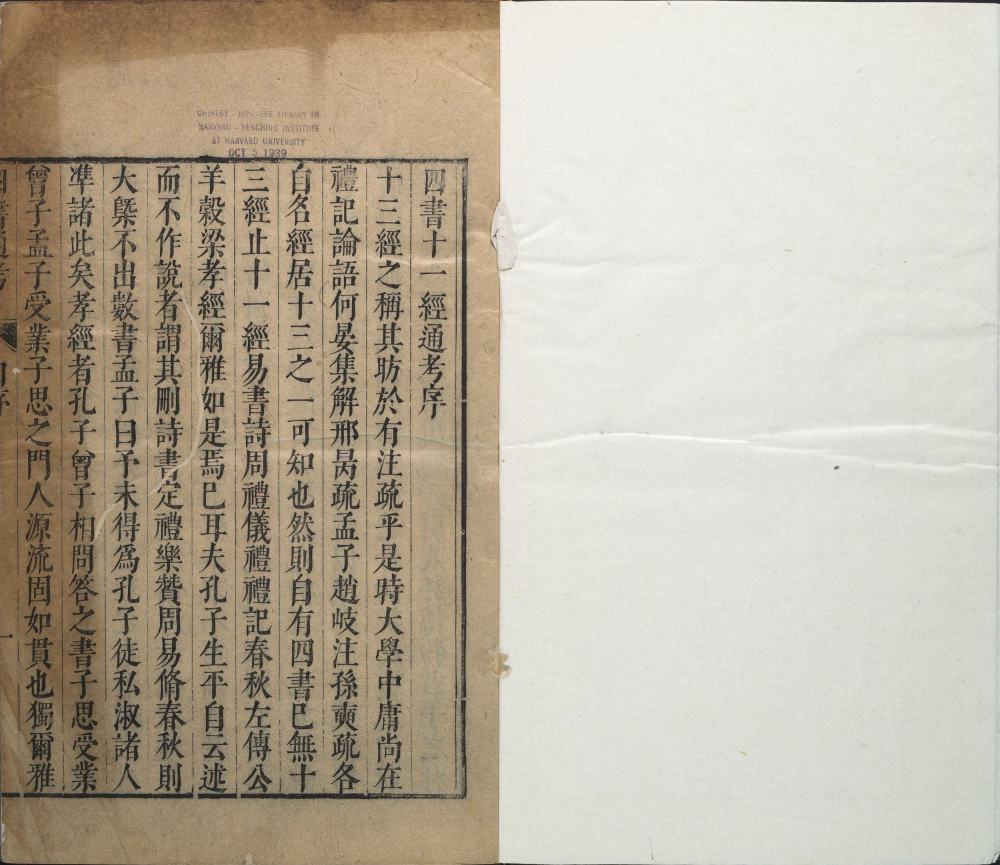 CHINESE - JAPANESE LIBRARY OF
HARVARD - YENCHING INSTITUTE
AT HARVARD UNIVERSITY
OCT 5 1939
四書十一經通考序
十三經之稱其昉於有注疏乎是時大學中庸尚在
禮記論語何晏集解邢昺疏孟子趙岐注孫奭疏各
自名經居十三之一可知也然則自有四書已無十
三經止十一經易書詩周禮儀禮禮記春秋左傳公
羊穀梁孝經爾雅如是焉已耳夫孔子生平自云述
而不作說者謂其刪詩書定禮樂贊周易脩春秋則
大槩不出數書孟子曰予未得爲孔子徒私淑諸人
準諸此矣孝經者孔子曾子相問答之書子思受業
曾子孟子受業子思之門人源流固如貫也獨爾雅
四書通考
自序
一